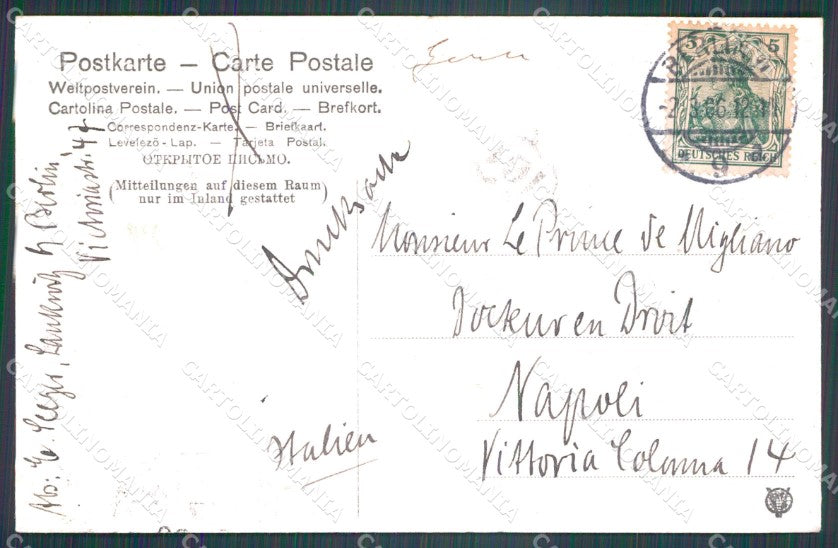 Postkarte – Carte Postale
Weltpostverein. — Union postale universelle.
Cartolina Postale. — Post Card. — Brefkort.
Correspondenz-Karte. — Briefkaart.
Levelező-Lap. — Tarjeta Postal.
ОТКРЫТОЕ ПИСЬМО.
(Mitteilungen auf diesem Raum
nur im Inland gestattet)
5 5
DEUTSCHES REICH
9
Drucksache
Monsieur Le Prince de Migliano
Docteur en Droit
Napoli
Vittoria Colonna 14
Italien
Abs: E. Seeger, Lankwitz b/ Berlin
Victoriastr. 47
CARTOLINOMANIA